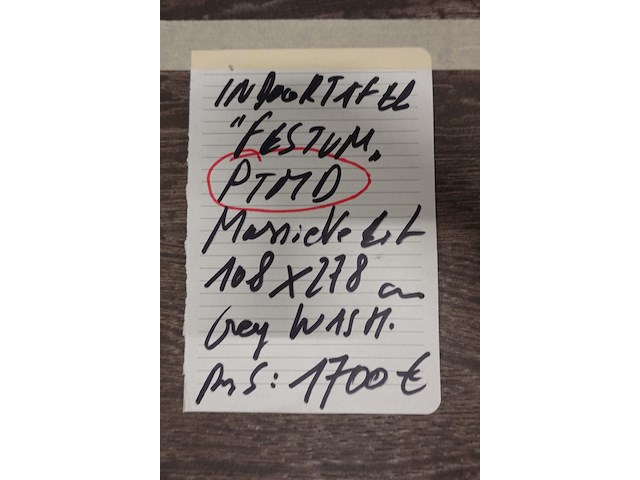 INDOORTAFEL
"FESTUM"
PTMD
Massieve eik
108 X 278 cm
Grey WASH.
PRIJS: 1700 €